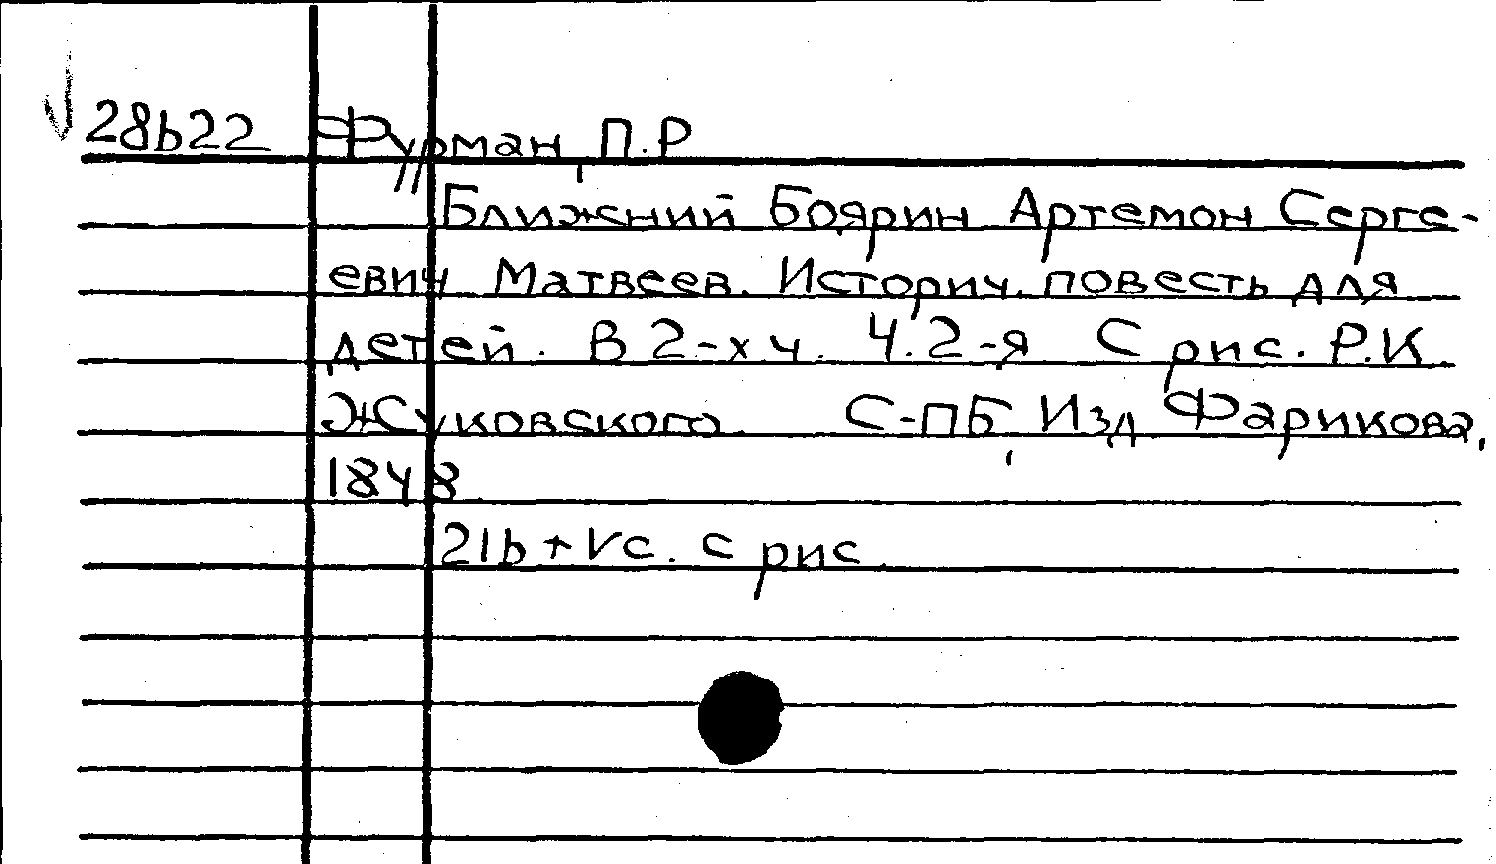 28622 Фурман, П.Р
Ближний Боярин Артемон Серге-
евич Матвеев. Историч. повесть для
детей. В 2-х ч. Ч.2-я С рис. Р.К.
Жуковского. С-ПБ, Изд Фарикова,
1848
216+Vс. с рис.